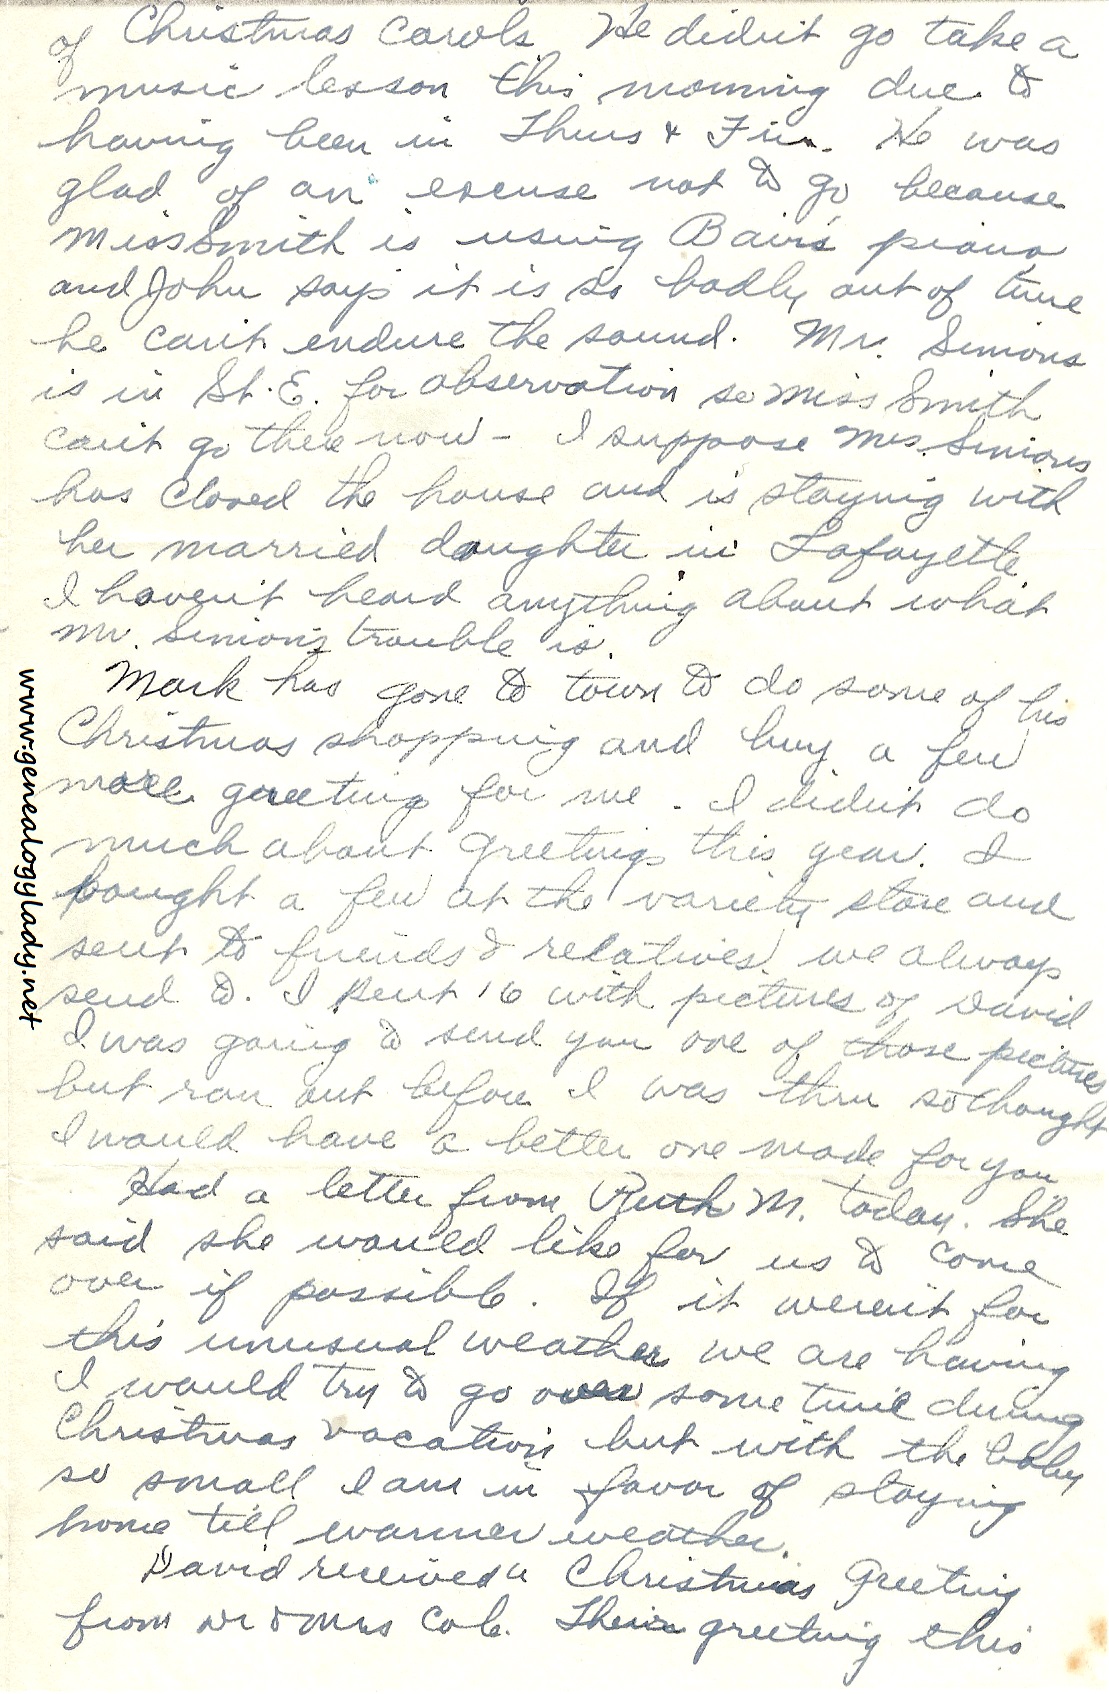 of Christmas Carols. He didn't go take a
music lesson this morning due to
having been in Thurs & Fri. He was
glad of an excuse not to go because
Miss Smith is using Bair's piano
and John says it is so badly out of tune
he can't endure the sound. Mr. Simons
is in St. E. for observation so Miss Smith
can't go there now - I suppose Mrs. Simons
has closed the house and is staying with
her married daughter in Lafayette.
I haven't heard anything about what
Mr. Simon's trouble is.
Mark has gone to town to do some of his
Christmas shopping and buy a few
more greeting for me. I didn't do
much about greetings this year. I
bought a few at the variety store and
sent to friends & relatives we always
send to. I sent 16 with pictures of David
I was going to send you one of those pictures
but ran out before I was thru so thought
I would have a better one made for you.
Had a letter from Ruth M. today. She
said she would like for us to come
over if possible. If it weren't for
this unusual weather we are having
I would try to go over some time during
Christmas vacation but with the baby
so small I am in favor of staying
home till warmer weather.
David received a Christmas Greeting
from Dr & Mrs Cole. Their greeting this
www.genealogylady.net